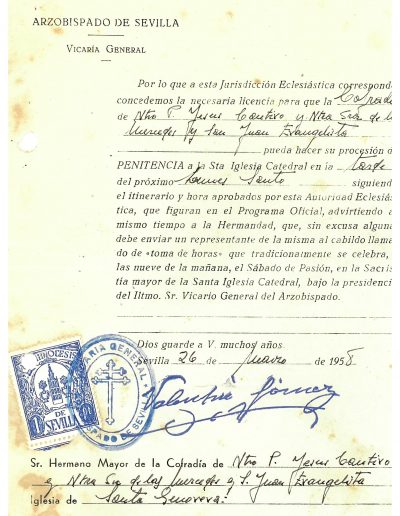 ARZOBISPADO DE SEVILLA
VICARÍA GENERAL
Por lo que a esta Jurisdicción Eclesiástica correspond
concedemos la necesaria licencia para que la Cofradía
de Ntro P. Jesus Cautivo y Ntra Sra de las
Mercedes y San Juan Evangelista
pueda hacer su procesión d
PENITENCIA a la Sta Iglesia Catedral en la tarde
del próximo Lunes Santo siguiend
el itinerario y hora aprobados por esta Autoridad Eclesiás
tica, que figuran en el Programa Oficial, advirtiendo a
mismo tiempo a la Hermandad, que, sin excusa alguna
debe enviar un representante de la misma al cabildo llama
do de «toma de horas» que tradicionalmente se celebra,
las nueve de la mañana, el Sábado de Pasión, en la Sacris
tía mayor de la Santa Iglesia Catedral, bajo la presidenci
del Iltmo. Sr. Vicario General del Arzobispado.
Dios guarde a V. muchos años
Sevilla 26 de Marzo de 1958
DIOCESIS
DE
SEVILLA
VICARIA GENERAL
ARZOBISPADO DE SEVILLA
Valentin Gómez
Sr. Hermano Mayor de la Cofradía de Ntro P. Jesus Cautivo
y Ntra Sra de las Mercedes y S. Juan Evangelista
Iglesia de Santa Genoveva.-